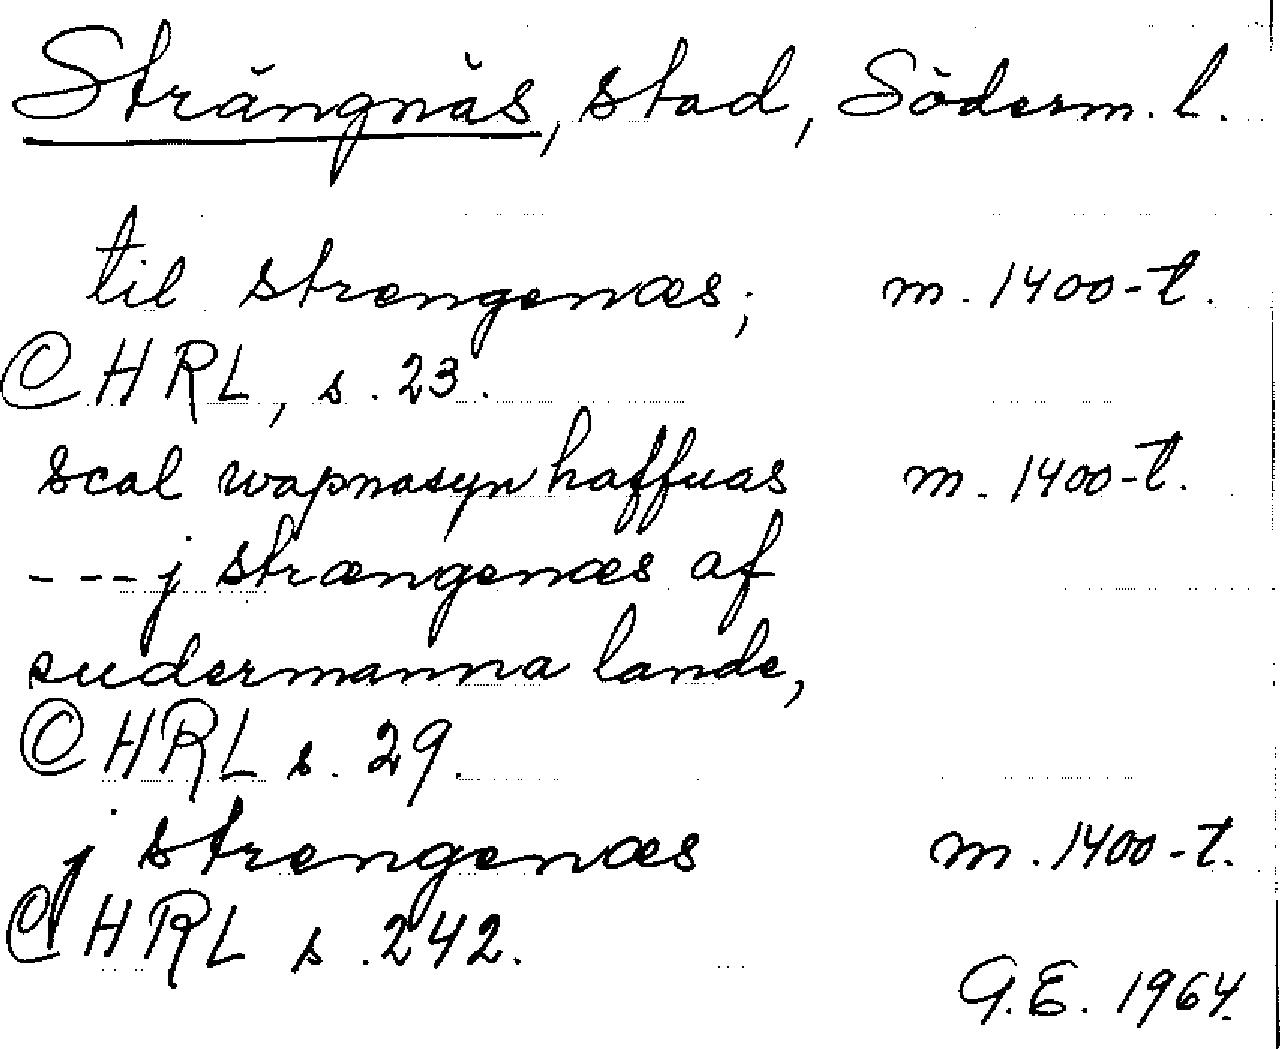 Strängnäs, stad, Söderm. l.
til strengenæs; m. 1400-t.
CHRL, s. 23.
scal wapnasyn haffuas m. 1400-t.
--- j strængenæs af
sudermanna lande,
CHRL s. 29.
j strengenæs m. 1400-t.
CHRL s. 242.
G.E. 1964.